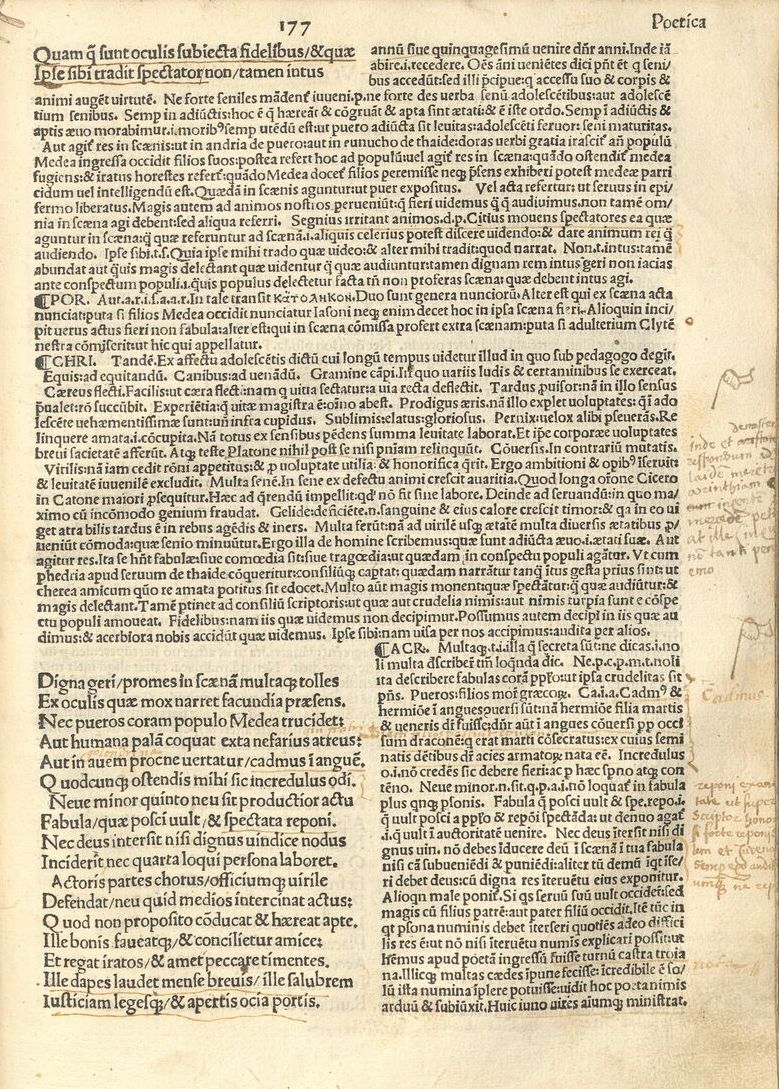 177
Poetica
Quam q̃ sunt oculis subiecta fidelibus/&quæ
Ipse sibi tradit spectator non/tamen intus
annũ siue quinquagesimũ uenire dñr anni. Inde iã
abire.i.recedere. Oẽs ãni ueniẽtes dici pñt ẽt q seni/
bus accedũt:sed illi p̃cipue:q accessu suo & corpis &
animi augẽt uirtutẽ. Ne forte seniles mãdent̃ iuueni.p.ne forte des uerba senũ adolescẽtibus:aut adolescẽ
tium senibus. Semp in adiũctis:hoc ẽ q̃ hæreãt & cõgruãt & apta sint ætati:& ẽ iste ordo. Semp ĩ adiũctis &
aptis æuo morabimur.i.morib⁹semp utẽdũ est:ut puero adiũcta sit leuitas:adolescẽti feruor: seni maturitas.
Aut agit̃ res in scænis:ut in andria de puero:aut in eunucho de thaide:doras uerbi gratia irascit̃ añ populũ
Medea ingressa occidit filios suos:postea refert hoc ad populũ:uel agit̃ res in scæna:quãdo ostendit̃ medea
fugiens:& iratus horestes refert̃:quãdo Medea docet̃ filios peremisse neq̃ p̃sens exhiberi potest medeæ parri
cidum uel intelligendũ est. Quædã in scænis agunt̃:ut puer expositus. Vel acta refertur: ut seruus in epi/
fermo liberatus. Magis autem ad animos nostros perueniũt:q̃ fieri uidemus q̃ q̃ audiuimus.non tamẽ om/
nia in scæna agi debent:sed aliqua referri. Segnius irritant animos.d.p. Citius mouens spectatores ea quæ
aguntur in scæna:q̃ quæ referuntur ad scænã.i.aliquis celerius potest discere uidendo:& dare animum rei q̃
audiendo. Ipse sibi.t.s. Quia ipse mihi trado quæ uideo:& alter mihi tradit:quod narrat. Non.t.intus:tamẽ
abundat aut q̃uis magis delectant quæ uidentur q̃ quæ audiuntur:tamen dignam rem intus geri non iacias
ante conspectum populi.i.quis populus delectetur facta tñ non proferas scæna: quæ debent intus agi.
¶POR. Aut.a.r.i.s.a.a.r. In tale transit κατολικον. Duo sunt genera nunciorũ. Alter est qui ex scæna acta
nunciat:puta si filios Medea occidit nunciatur Iasoni neq̃ enim decet hoc in ipsa scæna fieri. Alioquin inci/
pit uerus actus fieri non fabula:alter est:qui in scæna cõmissa profert extra scænam:puta si adulterium Clytẽ
nestra cõmiserit:ut hic qui appellatur.
¶CHRI. Tandẽ. Ex affectu adolescẽtis dictũ cui longũ tempus uidetur illud in quo sub pedagogo degit.
Equis:ad equitandũ. Canibus:ad uenãdũ. Gramine cãpi. In quo uariis ludis & certaminibus se exerceat.
Cæreus flecti. Facilis:ut cæra flecti:nam q uitia sectatur:a uia recta deflectit. Tardus puisor:nã in illo sensus
p̃ualet:rõ succũbit. Experiẽtia:q̃ uitæ magistra ẽ:oĩno abest. Prodigus æris.nã illo explet uoluptates:q̃ĩ ado
lescẽte uehæmentissimæ sunt:uñ infra cupidus. Sublimis:elatus:gloriosus. Pernix:uelox alibi pseuerãs. Re
linquere amata.i.cõcupita. Nã totus ex sensibus pẽdens summa leuitate laborat. Et ip̃e corporeæ uoluptates
breui sacietatẽ afferũt. Atq̃ teste Platone nihil post se nisi pniam relinquũt. Cõuersis. In contrariũ mutatis.
Virilis:nã iam cedit rõni appetitus:& p uoluptate utilia: & honorifica q̃rit. Ergo ambitioni & opib⁹ ĩseruit:
& leuitatẽ iuuenilẽ excludit. Multa senẽ. In sene ex defectu animi crescit auaritia. Quod longa orõne Cicero
in Catone maiori psequitur. Hæc ad q̃rendũ impellit:qd' nõ fit sine labore. Deinde ad seruandũ:in quo ma/
ximo cũ incõmodo genium fraudat. Gelide:deficiẽte.n.sanguine & eius calore crescit timor:& qa in eo ui
get atra bilis tardus ẽ in rebus agẽdis & iners. Multa ferũt:nã ad uirilẽ usq̃ ætatẽ multa diuersis ætatibus p/
ueniũt cõmoda:quæ senio minuũtur. Ergo illa de homine scribemus:quæ sunt adiũcta æuo.i.ætati suæ. Aut
agitur res. Ita se hñt fabulæ:siue comœdia sit:siue tragœdia:ut quædam in conspectu populi agãtur. Vt cum
phedria apud seruum de thaide cõqueritur:consiliũq̃ captat: quædam narrãtur tanq̃ ĩtus gesta prius sint: ut
cherea amicum quõ re amata potitus sit edocet. Multo aũt magis monent:quæ spectãtur:q̃ quæ audiũtur:&
magis delectant. Tamẽ ptinet ad consiliũ scriptoris:ut quæ aut crudelia nimis:aut nimis turpia sunt e cõspe
ctu populi amoueat. Fidelibus:nam iis quæ uidemus non decipimur. Possumus autem decipi in iis quæ au
dimus:& acerbiora nobis accidũt quæ uidemus. Ipse sibi:nam uisa per nos accipimus:audita per alios.
Digna geri/promes in scænã multaq̃ tolles
Ex oculis quæ mox narret facundia præsens.
Nec pueros coram populo Medea trucidet:
Aut humana palã coquat exta nefarius atreus:
Aut in auem procne uertatur/cadmus ĩ anguẽ.
Quodcunq̃ ostendis mihi sic incredulus odi.
Neue minor quinto neu sit productior actu
Fabula/quæ posci uult/& spectata reponi.
Nec deus intersit nisi dignus uindice nodus
Inciderit nec quarta loqui persona laboret.
Actoris partes chorus/officiumq̃ uirile
Defendat/neu quid medios intercinat actus:
Quod non proposito cõducat & hæreat apte.
Ille bonis faueatq̃/& concilietur amice:
Et regat iratos/& amet peccare timentes.
Ille dapes laudet mense breuis/ille salubrem
Iusticiam legesq̃/& apertis ocia portis.
¶ACR. Multaq̃.t.i.illa q̃ secreta sũt:ne dicas.i.no
li multa dscriber̃ tm̃ loq̃nda dic. Ne.p.c.p.m.t.noli
ita describere fabulas corã pp̃lo:ut ipsa crudelitas sit
pñs. Pueros:filios mor̃ græcoꝝ. Ca.i.a. Cadm⁹ &
hermiõe ĩ angues uersi sũt:nã hermiõe filia martis
& ueneris dr̃ fuisse:dñr aũt ĩ angues cõuersi pp occi
sum draconẽ:q erat marti cõsecratus:ex cuius semi
natis dẽtibus dr̃ acies armatoꝝ nata eẽ. Incredulus
o.i.nõ credẽs sic debere fieri:ac p hæc spno atq̃ con
tẽno. Neue minor.n.sit.q.p.a.i.nõ loquat̃ in fabula
plus qnq̃ psonis. Fabula q̃ posci uult & spe.repo.i.
q̃ uult posci a pp̃lo & repõi spectãda: ut denuo agat̃
.i.q̃ uult ĩ auctoritatẽ uenire. Nec deus ĩtersit nisi di
gnus uin. nõ debes ĩducere deũ ĩ scænã ĩ tua fabula
nisi cã subueniẽdi & puniẽdi:aliter tũ demũ ĩqt ĩse/
ri debet deus:cũ digna res ĩteruẽtu eius exponitur.
Alioqn male ponit̃. Si q̃s seruũ suũ uult occidet:sed
magis cũ filius patrẽ:aut pater filiũ occidit. Itẽ tũc in
qt psona numinis debet ĩterseri quotiẽs adeo diffici
lis res ẽ:ut nõ nisi ĩteruẽtu numĩs explicari possit:ut
Hẽmus apud poetã ingressũ fuisse turnũ castra troia
na. Illicq̃ multas cædes ĩpune fecisse: ĩcredibile ẽ so/
lũ ista numina ĩplere potuisse:uidit hoc poeta nimis
arduũ & subiũxit. Huic iuno uires aiumq̃ ministrat.
Cadmus
nota